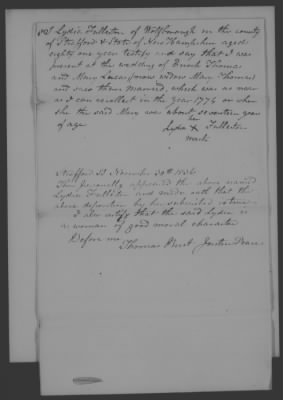 I Lydia Fullerton of Wolfborough in the county
of Strafford & State of New Hampshire aged
eighty one year testify and say that I was
present at the wedding of Enoch Thomas
and Mary now widow Mary Thomas
and saw them married, which was as near
as I can recollect in the year 1774 or when
she the said Mary was about seventeen year
of age
her
Lydia X Fullerton
mark
Strafford SS November 30th 1836
Then personally appeared the above named
Lydia Fullerton and made oath that the
above deposition by her subscribed is true
I also certify that the said Lydia is
a woman of good moral character
Before me
Thomas Justice Peace